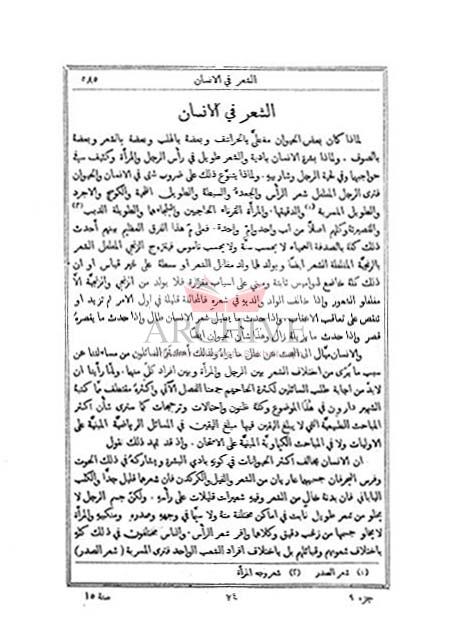 الشعر في الانسان ٥٨٥
الشعر في الانسان
لماذا كان بعض الحيوان مغطى بالحراشف وبعضه بالهلب وبعضه بالشعر وبعضه
بالصوف. ولماذا بشرة الانسان بادية والشعر طويل في رأس الرجل والمرأة وكثيف في
حواجبها وفي لحية الرجل وشاربيه. ولماذا يتنوع ذلك على ضروب شتى في الانسان والحيوان
فترى الرجل المفلفل شعر الرأس والجعده والسبطه والطويل اللحية والكوسج والاجرد
والطويل المسربة (١) والدقيقها. والمرأة القرناء الحاجبين والبلجاءها والطويلة الذنب (٢)
والقصيرته وكلهم اصلا من اب واحد وام واحدة. فعلى مَ هذا الفرق العظيم بينهم أحدث
ذلك كله بالصدفة العمياء لا بحسب سنة ولا بحسب ناموس فيتزوج الزنجي المفلفل الشعر
الزنجية المفلفلة الشعر ايضا ويولد لهما ولد مفلفل الشعر او سبطه على غير قياس او ان
ذلك كله خاضع لنواميس ثابتة ومبني على اسباب مقررة فلا يولد من الزنجي والزنجية الا
مفلفلو الشعور واذا خالف الولد والديه في شعره فالمخالفة قليلة في اول الامر ثم تزيد او
تنقص على تعاقب الاعقاب. واذا حدث ما يطيل شعر الانسان طال واذا حدث ما يقصره
قصر واذا حدث ما يزيله زال وهذا شأن الحيوان ايضا
ARCHIVE
والانسان ميال الى البحث عن علل ما يراه ولذلك السائلون من مساءلتنا عن
سبب ما يُرَى من اختلاف الشعر بين الرجل والمرأة وبين افراد كل منها. ولما رأينا ان
لا بد من اجابة طلب السائلين لكثرة الحاحهم جمعنا الفصل الآتي واكثره مقتطف مما كتبه
الشهير دارون في هذا الموضوع وكله ظنون واحتمالات وترجيحات كما سترى شأن اكثر
المباحث الطبيعية التي لا يبلغ اليقين فيها مبلغ اليقين في المسائل الرياضية المبنية على
الاوليات ولا في المباحث الكيماوية المبنية على الامتحان. واذ قد تمهد ذلك نقول
ان الانسان يخالف اكثر الحيوانات في كونه بادي البشرة ويشاركه في ذلك الحوت
وفرس البحر فان جسميها عاريان من الشعر والفيل والكركدن فان شعرها قليل جدًا والكلب
الياباني فان بدنه خال من الشعر وفيه شعيرات قليلات على رأسه. ولكن جسم الرجل لا
يخلو من شعر طويل نابت في اماكن مختلفة منه ولا سيما في وجهه وصدره ومنكبيه والمرأة
لا يخلو جسمها من زغب دقيق وكلاهما وافر شعر الرأس. والناس مختلفون في ذلك كله
باختلاف شعوبهم وقبائلهم بل باختلاف افراد الشعب الواحد فترى المسربة (شعر الصدر)
(١) شعر الصدر (٢) شعر وجه المرأة
جزء ٩ ٧٤ سنة ١٥